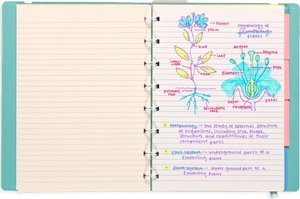 flower
Morphology of
flowering
plants
stem
bud
leaf
anther
stigma
filament
petal
sepal
roots
• Morphology — the study of external structure
of organisms, including size, shape,
structure and relationships of their
component parts
• Root system — underground parts of a
flowering plant
• Shoot system — above ground parts of a
flowering plant